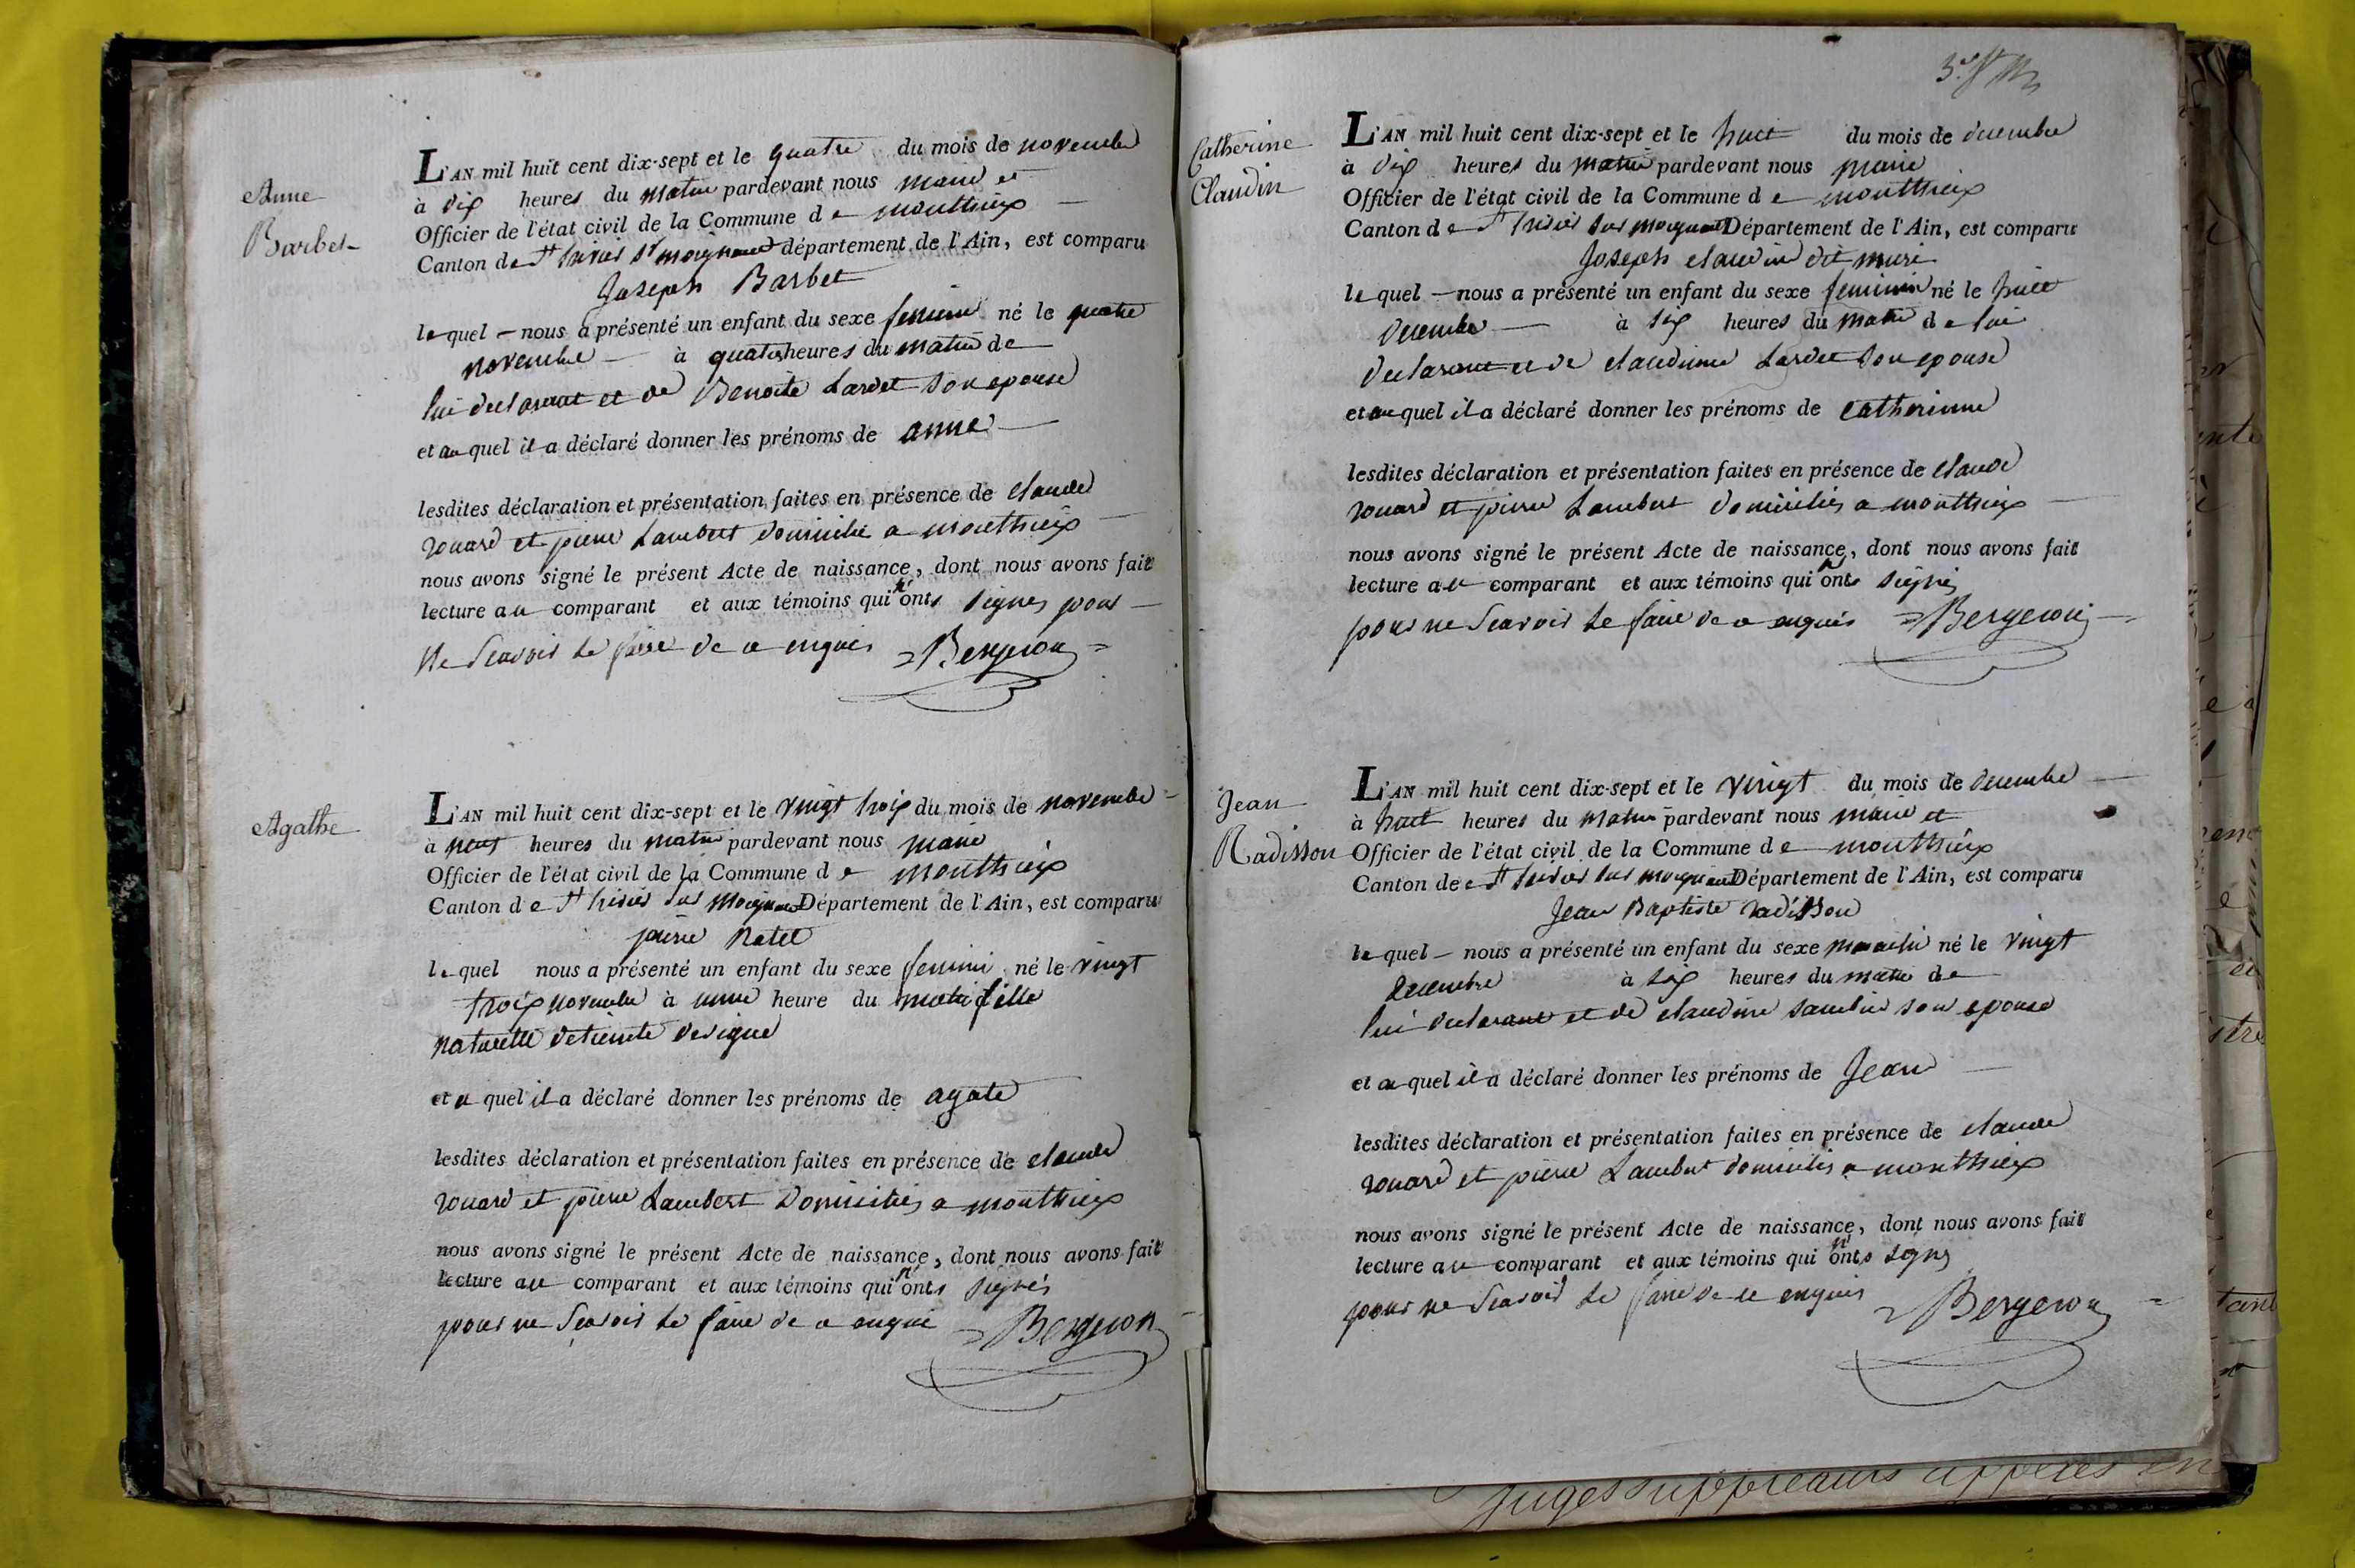 Anne
Barbet
L'AN mil huit cent dix-sept et le quatre du mois de novembre
à dix heures du matin pardevant nous maire et
Officier de l'état civil de la Commune de monthieux
Canton de St trivier sr moignand département de l'Ain, est comparu
Joseph Barbet
lequel nous a présenté un enfant du sexe feminin né le quatre
novembre à quatre heures du matin de
lui declarant et de Benoite Lardet son epouse
et auquel il a déclaré donner les prénoms de anne
lesdites déclaration et présentation faites en présence de claude
rouard et pierre Lambert domicilié a monthieux
nous avons signé le présent Acte de naissance, dont nous avons fait
lecture au comparant et aux témoins qui n'onts signés pour
ne scavoir le faire de ce enquis Bergeron
Agathe
L'AN mil huit cent dix-sept et le vingt troix du mois de novembre
à neuf heures du matin pardevant nous maire
Officier de l'état civil de la Commune de monthieux
Canton de St trivier sur moignand Département de l'Ain, est comparu
pierre Natet
lequel nous a présenté un enfant du sexe feminin né le vingt
troix novembre à unne heure du matin fille
naturelle de
et auquel il a déclaré donner les prénoms de agate
lesdites déclaration et présentation faites en présence de claude
rouard et pierre Lambert Domiciliés a monthieux
nous avons signé le présent Acte de naissance, dont nous avons fait
lecture au comparant et aux témoins qui n'onts signés
pour ne scavoir le faire de ce enqui Bergeron
Catherine
Claudin
L'AN mil huit cent dix-sept et le huit du mois de decembre
à dix heures du matin pardevant nous maire
Officier de l'état civil de la Commune de monthieux
Canton de St trivier sur moignand Département de l'Ain, est comparu
Joseph claudin dit muri
lequel nous a présenté un enfant du sexe feminin né le huit
decembre à six heures du matin de lui
declarant et de claudinne Lardet son epouse
et auquel il a déclaré donner les prénoms de catherinne
lesdites déclaration et présentation faites en présence de claude
rouard et pierre Lambert domiciliés a monthieux
nous avons signé le présent Acte de naissance, dont nous avons fait
lecture au comparant et aux témoins qui n'onts signés
pour ne scavoir le faire de ce enquis Bergeron
Jean
Radisson
L'AN mil huit cent dix-sept et le vingt du mois de decembre
à huit heures du matin pardevant nous maire et
Officier de l'état civil de la Commune de monthieux
Canton de St trivier sur moignand Département de l'Ain, est comparu
Jean Baptiste radisson
lequel nous a présenté un enfant du sexe masculin né le vingt
decembre à six heures du matin de
lui declarant et de claudine son epouse
et auquel il a déclaré donner les prénoms de Jean
lesdites déclaration et présentation faites en présence de claude
rouard et pierre Lambert domiciliés a monthieux
nous avons signé le présent Acte de naissance, dont nous avons fait
lecture au comparant et aux témoins qui n'onts signs
pour ne scavoir le faire de ce enquis Bergeron